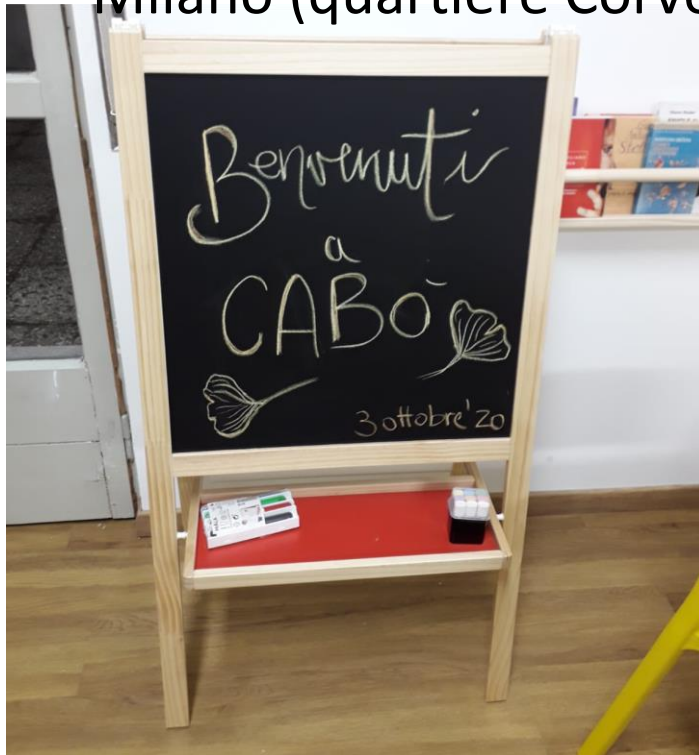 Milano (quartiere Corv
Benvenuti
a
CABÒ
3 ottobre '20